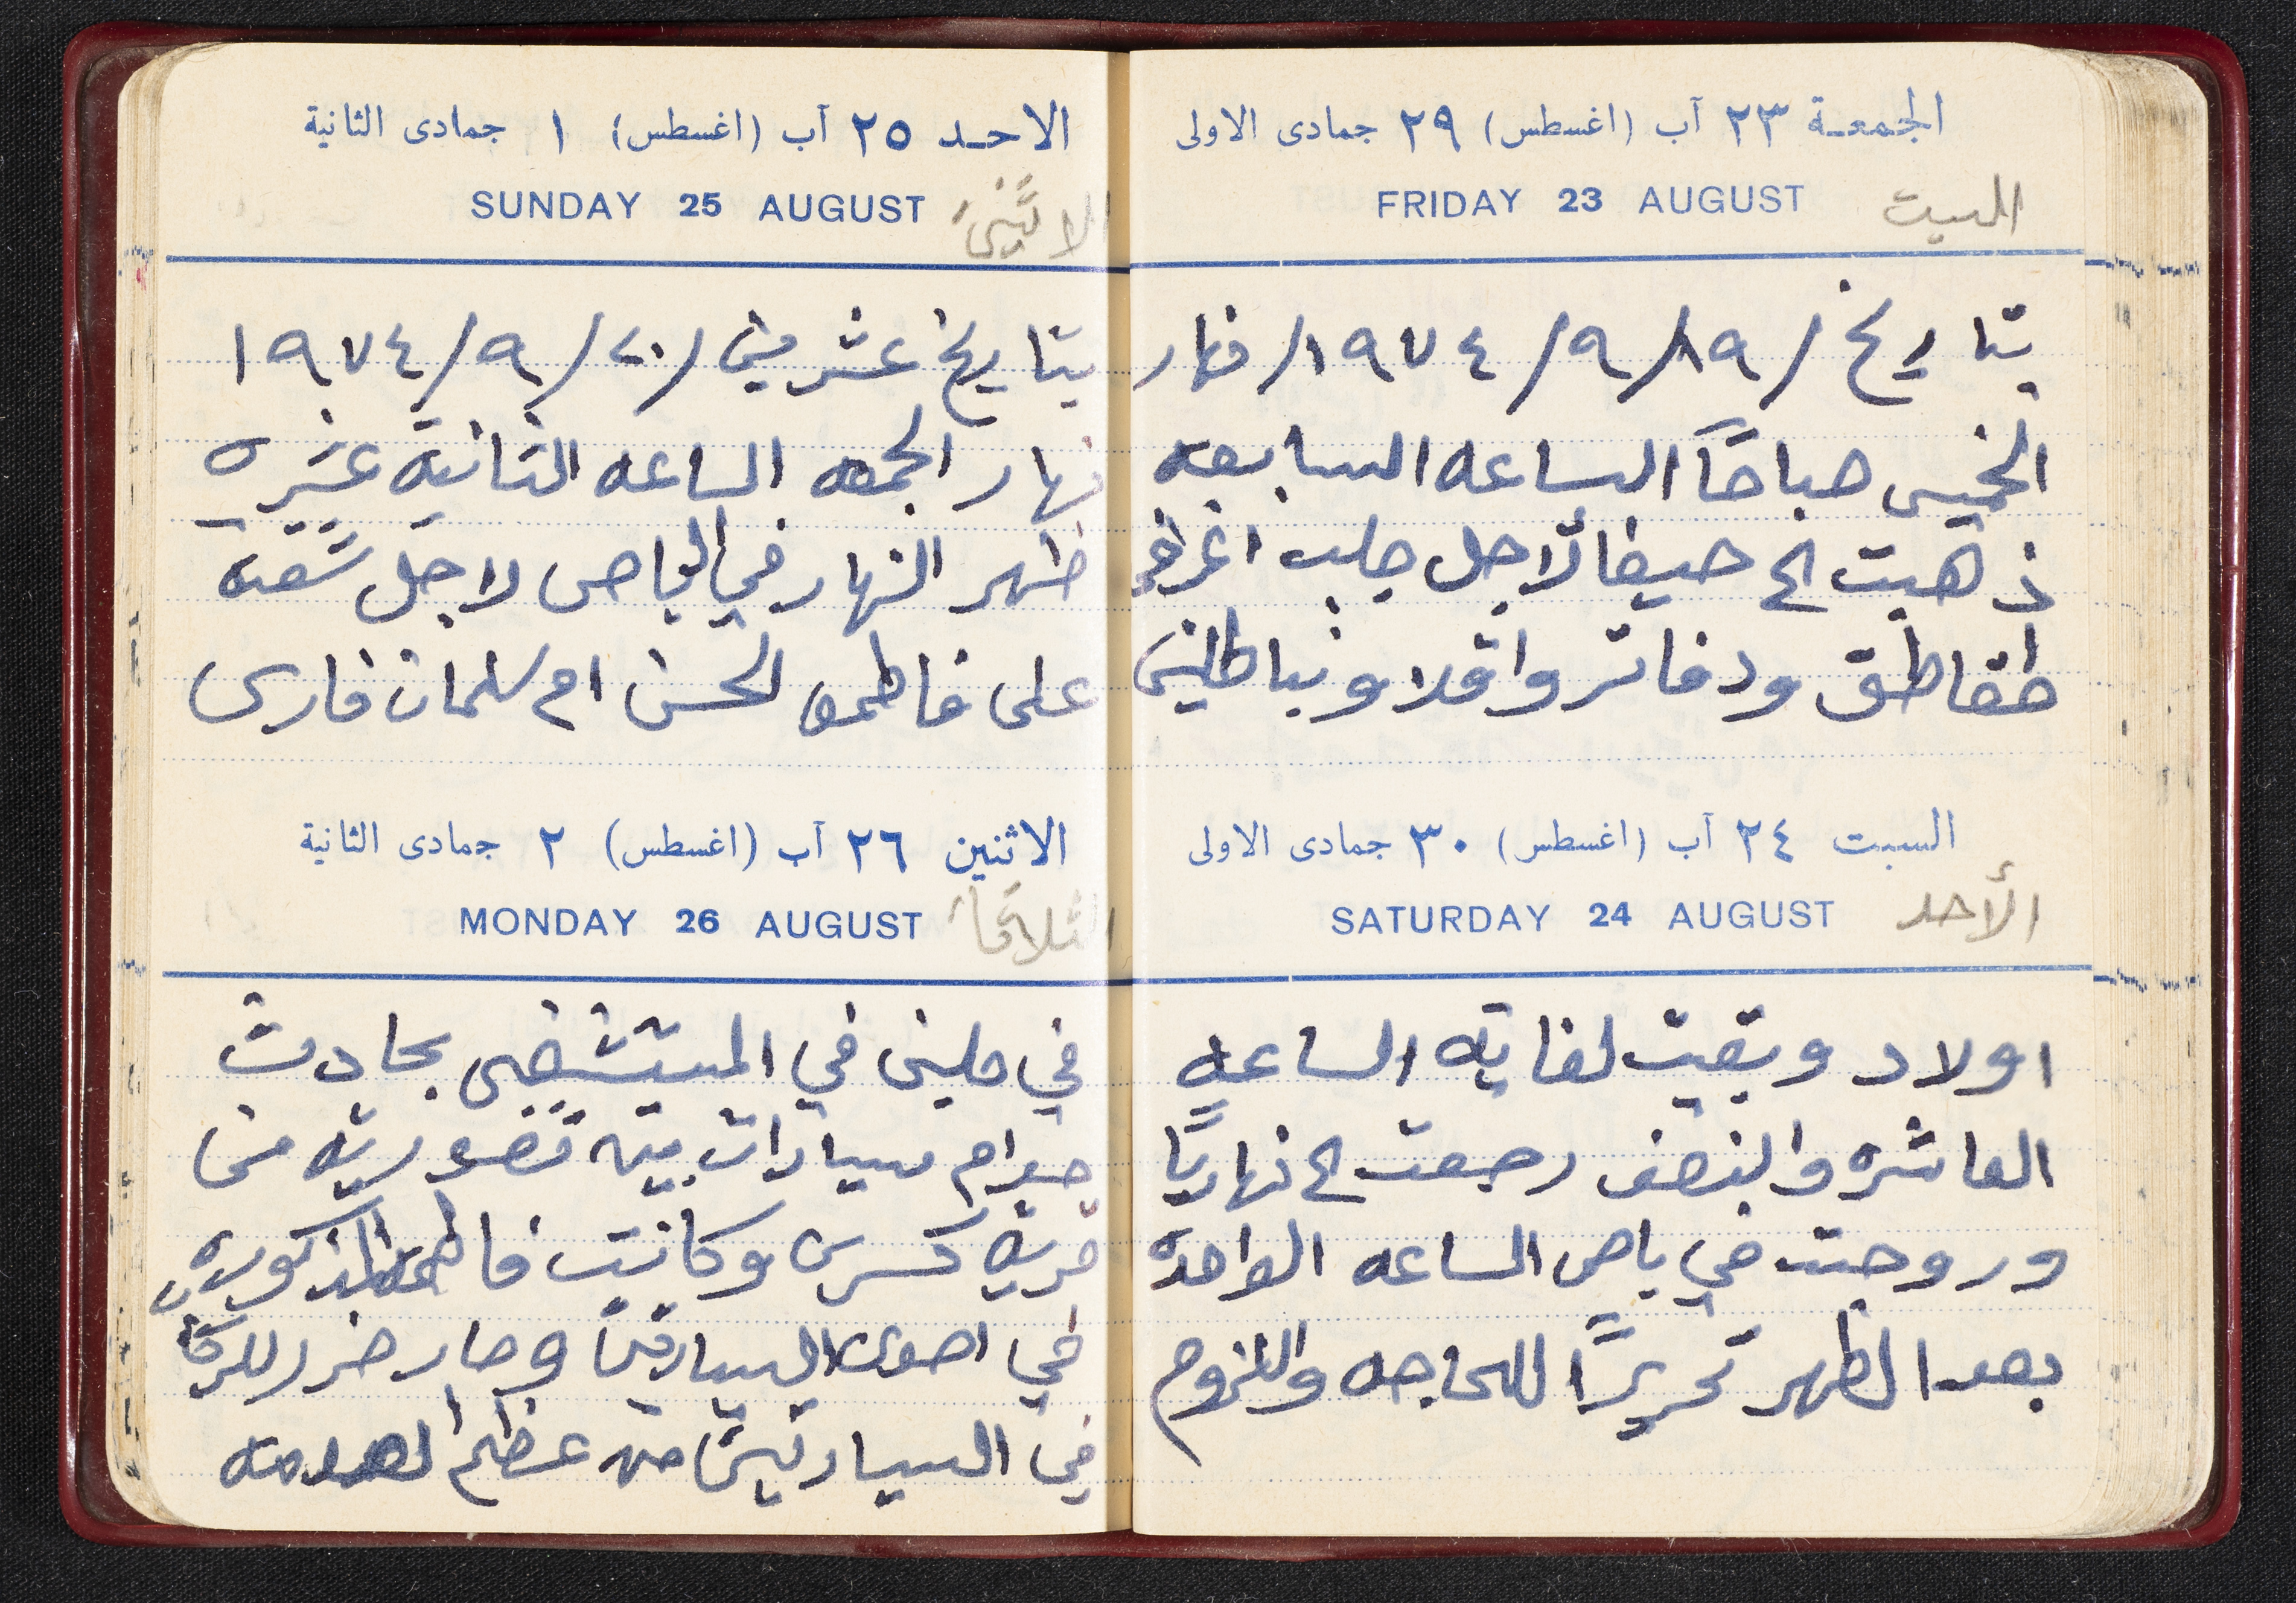 الجمعـة ٢٣ آب (اغسطس) ٢٩ جمادى الاولى
FRIDAY 23 AUGUST
السبت
بتاريخ /١٩/٩/١٩٧٤/ نهار
الخميس صباحاً الساعه السابعه
ذهبت الى حيفا لاجل جلب اغراض
طقاطق ودفاتر واقلام وبناطلين
السبت ٢٤ آب (اغسطس) ٣٠ جمادى الاولى
SATURDAY 24 AUGUST
الأحد
اولاد وبقيت لغاية الساعه
العاشره والنصف رجعت الى نهاريا
وروحت في باص الساعه الواحدة
بعد الظهر تحريرًا للحاجه واللزوم
الاحـد ٢٥ آب (اغسطس) ١ جمادى الثانية
SUNDAY 25 AUGUST
الاثنين
بتاريخ عشرين /٢٠/٩/١٩٧٤
نهار الجمعه الساعه الثانية عشره
ظهر النهار في الباص لاجل شقة
على فاطمه الحسن ام سلمان فارس
الاثنين ٢٦ آب (اغسطس) ٢ جمادى الثانية
MONDAY 26 AUGUST
الثلاثاء
في المستشفى بحادث
صدام سيارات بين
قرية كسرى وكانت فاطمه المذكوره
في السيارتين وصار ضرر للركاب
في السيارتين من عظم الصدمه